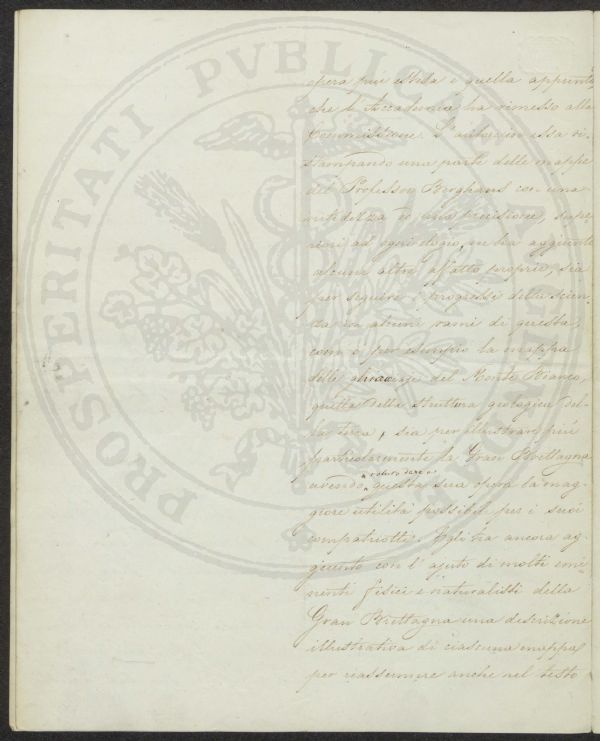 opera pur estesa è quella appunto
che l'Accademia ha rimesso alla
Commissione. L'autore in essa ri-
stampando una parte delle mappe
del Professor Berghaus con una
nitidezza e una precisione, supe-
riori ad ogni elogio, ne ha aggiunte
alcune altre affatto proprie, sia
per seguire i progressi della scien-
za in alcuni rami di questa,
com'è per esempio la mappa
delle ghiacciaje del Monte Bianco,
quella della struttura geologica del-
la terra, sia per illustrare più
particolarmente la Gran Brettagna
voluto dare a
avendo questa sua opera la mag-
giore utilità possibile per i suoi
compatriotti. Egli ha ancora ag-
giunto con l'ajuto di molti emi-
nenti fisici e naturalisti della
Gran Brettagna una descrizione
illustrativa di ciascuna mappa
per riassumere anche nel testo
PROSPERITATI PVBLICAE AVGENDAE